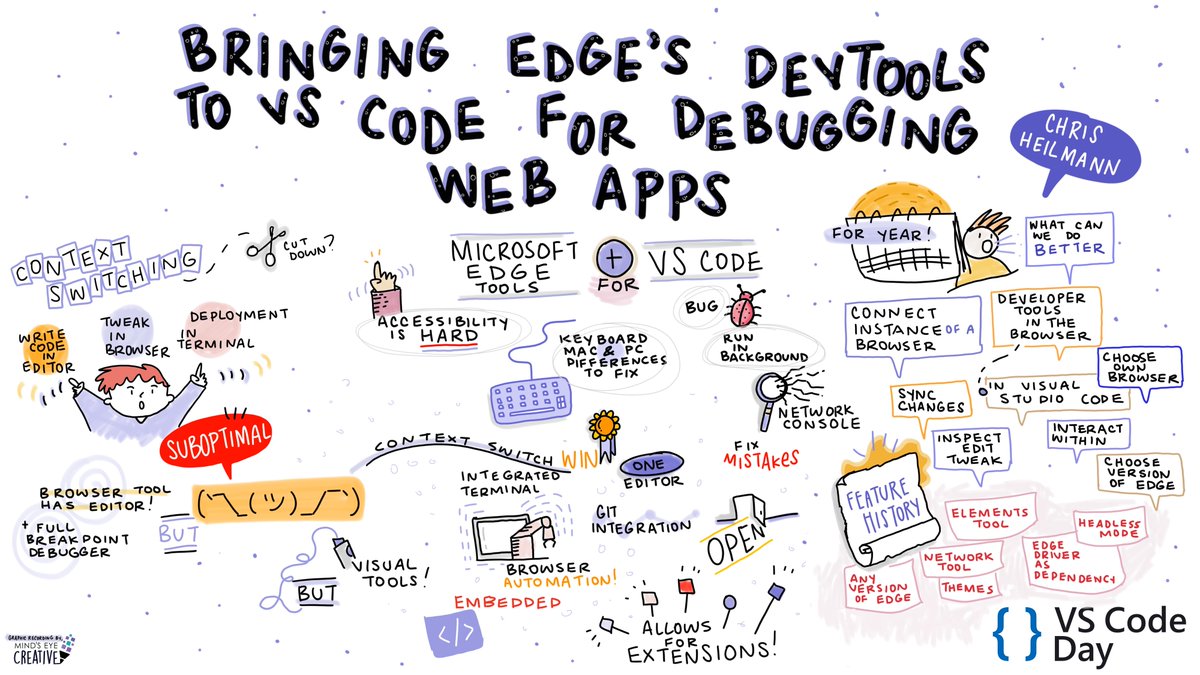 BRINGING EDGE'S DEVTOOLS
TO VS CODE FOR DEBUGGING
WEB APPS
CHRIS
HEILMANN
CONTEXT
SWITCHING
CUT
DOWN?
WRITE
CODE IN
EDITOR
TWEAK
IN
BROWSER
DEPLOYMENT
IN
TERMINAL
SUBOPTIMAL
BROWSER TOOL
HAS EDITOR!
+ FULL
BREAKPOINT
DEBUGGER
BUT
¯\_(ツ)_/¯
VISUAL
TOOLS!
BUT
MICROSOFT
EDGE
TOOLS
+
FOR
VS CODE
ACCESSIBILITY
IS HARD
KEYBOARD
MAC & PC
DIFFERENCES
TO FIX
BUG
RUN
IN
BACKGROUND
NETWORK
CONSOLE
CONTEXT SWITCH
WIN
ONE
EDITOR
FIX
MISTAKES
INTEGRATED
TERMINAL
GIT
INTEGRATION
OPEN
BROWSER
AUTOMATION!
EMBEDDED
</>
ALLOWS
FOR
EXTENSIONS!
FOR YEAR!
WHAT CAN
WE DO
BETTER
CONNECT
INSTANCE OF A
BROWSER
DEVELOPER
TOOLS
IN THE
BROWSER
CHOOSE
OWN
BROWSER
SYNC
CHANGES
IN VISUAL
STUDIO CODE
INSPECT
EDIT
TWEAK
INTERACT
WITHIN
CHOOSE
VERSION
OF EDGE
FEATURE
HISTORY
ELEMENTS
TOOL
HEADLESS
MODE
NETWORK
TOOL
EDGE
DRIVER
AS
DEPENDENCY
ANY
VERSION
OF EDGE
THEMES
GRAPHIC RECORDING BY,
MIND'S EYE
CREATIVE
{ } VS Code
Day